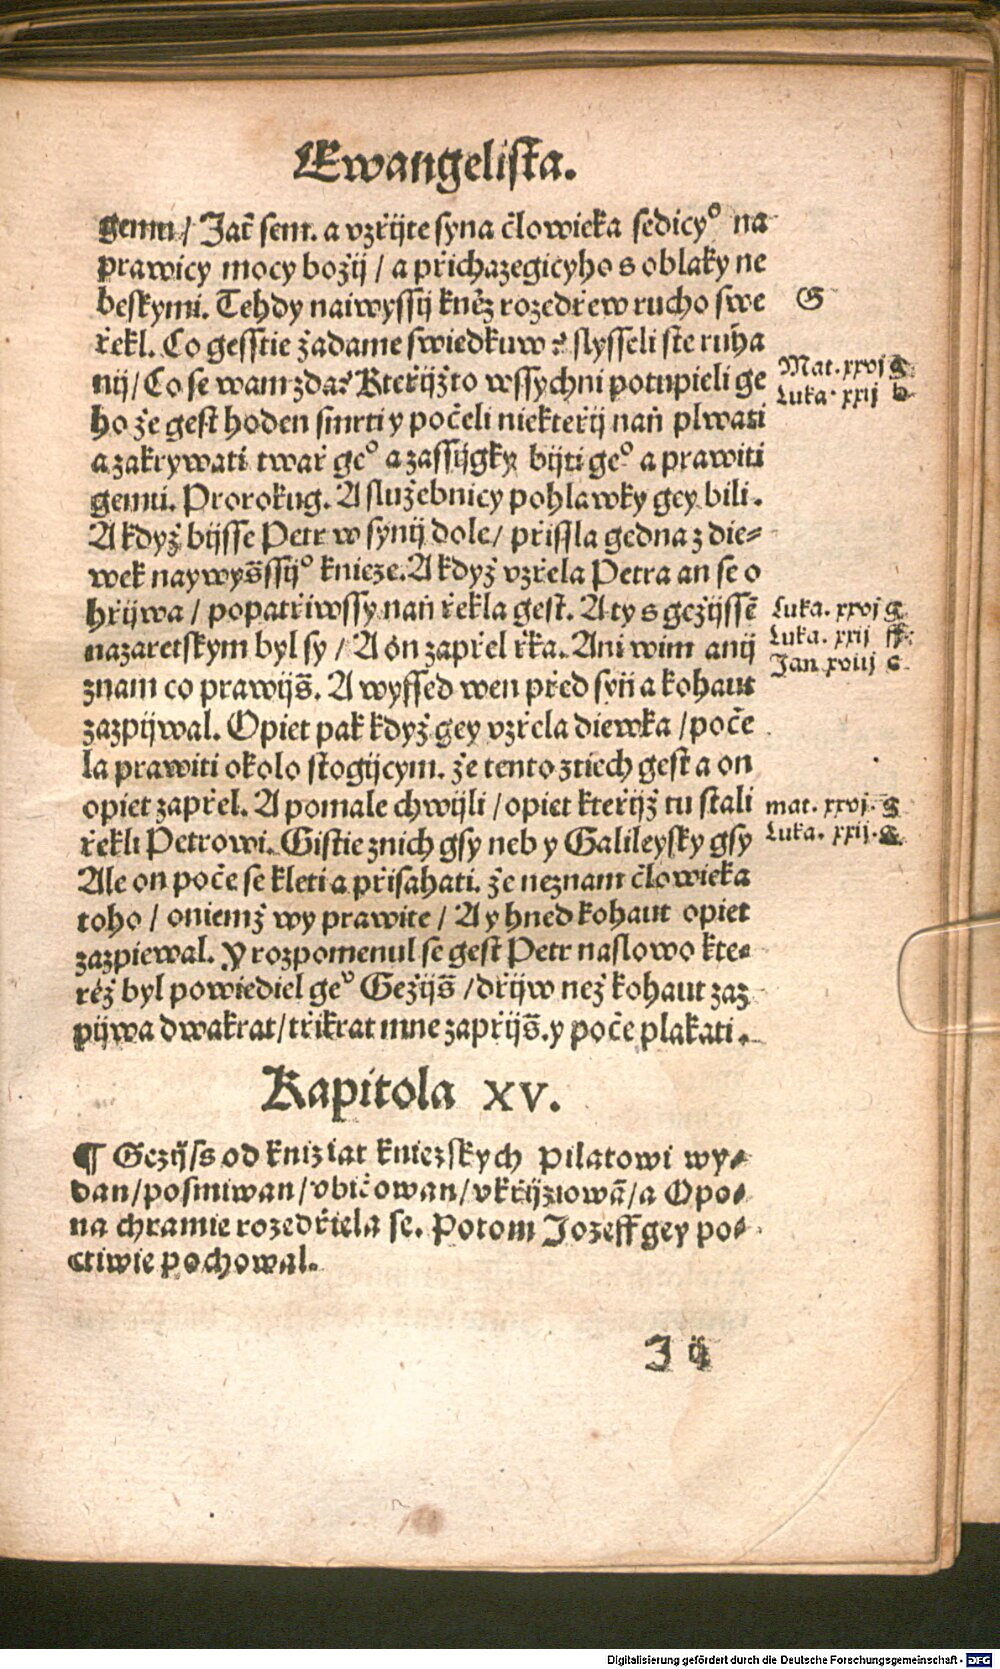 Ewangelista.
gemu / Jať sem. a vzřijte syna člowieka sedicy° na
prawicy mocy božij / a přichazegicyho s oblaky ne
beskymi. Tehdy naiwyssij kněz rozedřew rucho swe
řekl. Co gesstie žadame swiedkuw? slysseli ste ruha
nij / Co se wam zda? Kteřijžto wssychni potupieli ge
ho že gest hoden smrti y počeli niekteřij naň plwati
a zakrywati twař ge° a zassijgky bijti ge° a prawiti
gemu. Prorokug. A služebnicy pohlawky gey bili.
A když bijsse Petr w synij dole / přissla gedna z die=
wek naywyšssij° knieze. A když vzřela Petra an se o
hřijwa / popatřiwssy naň řekla gest. A ty s gežijssē
nazaretskym byl sy / A on zapřel řka. Ani wim anij
znam co prawijš. A wyssed wen před syň a kohaut
zazpijwal. Opiet pak když gey vzřela diewka / poče
la prawiti okolo stogijcym. že tento ztiech gest a on
opiet zapřel. A pomale chwijli / opiet kteřijž tu stali
řekli Petrowi. Gistie znich gsy neb y Galileysky gsy
Ale on poče se kleti a přisahati. že neznam člowieka
toho / oniemž wy prawite / A y hned kohaut opiet
zazpiewal. Y rozpomenul se gest Petr naslowo kte=
réž byl powiediel ge° Gežijš / dřijw než kohaut zaz
pijwa dwakrat / třikrat mne zapřijš. y poče plakati.
Kapitola XV.
¶ Gezijss od kniziat kniezskych Pilatowi wy=
dan / posmiwan / vbičowan / vkřijziowā / a Opo=
na chramie rozedřiela se. Potom Jozeff gey po=
ctiwie pochowal.
J ij
G
Mat. xxvj g
Luka. xxij
Luka. xxvj g
Luka. xxij ff
Jan xviij c
mat. xxvj. g
Luka. xxij. g
Digitalisierung gefördert durch die Deutsche Forschungsgemeinschaft - DFG